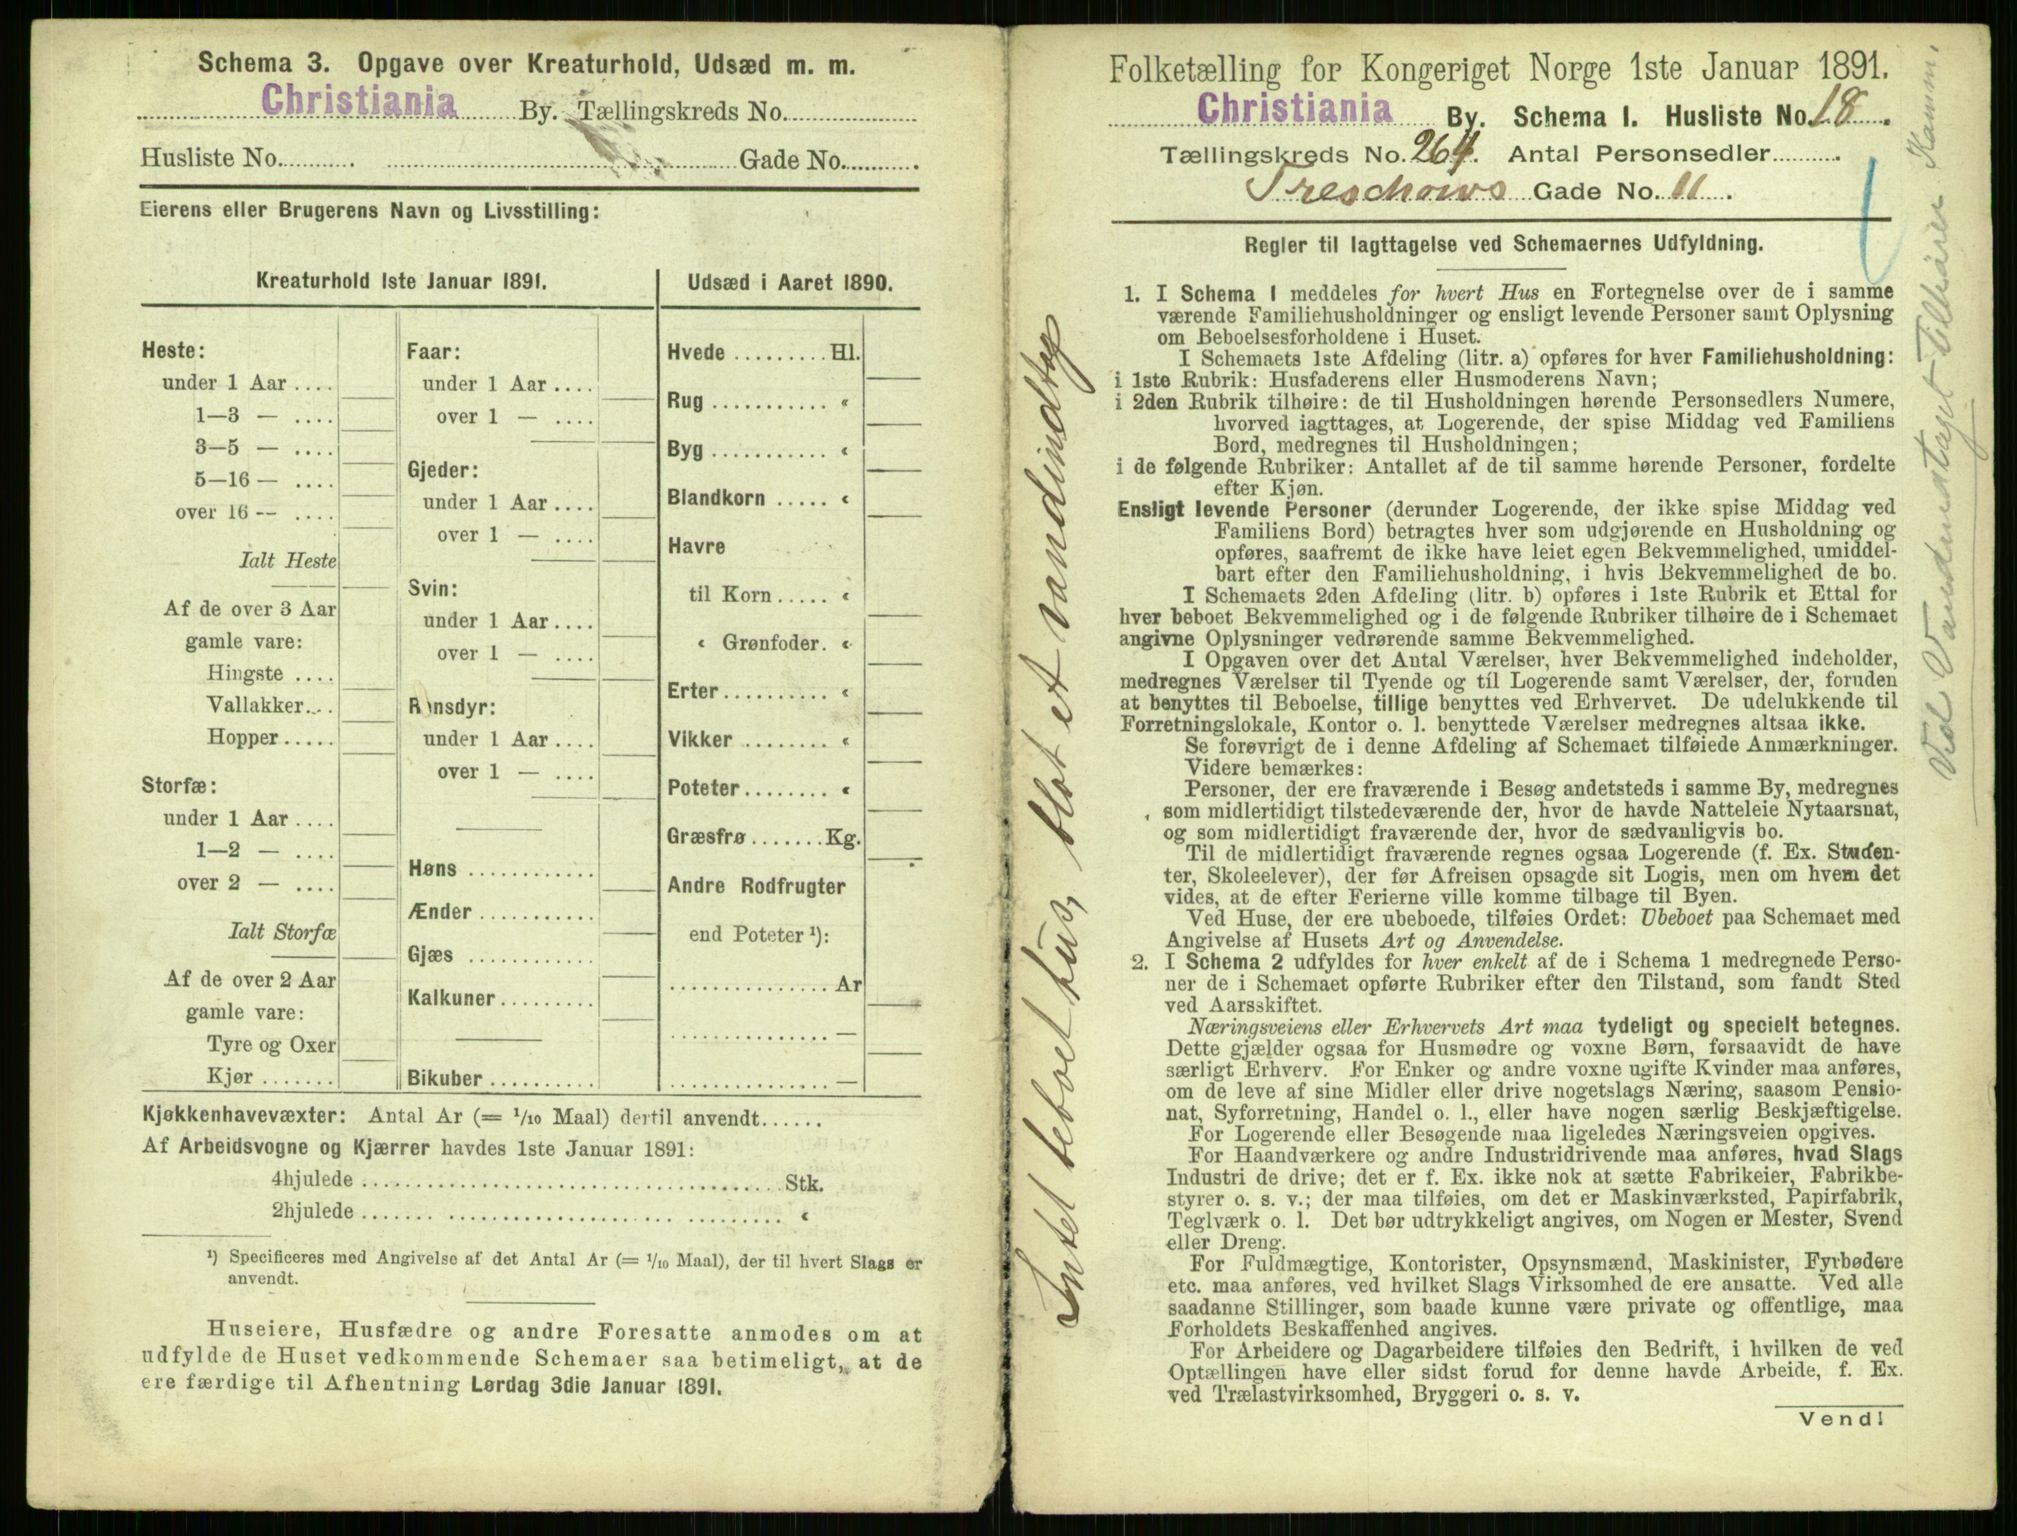 Schema 3. Opgave over Kreaturhold, Udsæd m. m.
Christiania By. Tællingskreds No.
Husliste No. Gade No.
Eierens eller Brugerens Navn og Livsstilling:
Kreaturhold 1ste Januar 1891.
Heste:
under 1 Aar ....
1—3 — ....
3—5 — ....
5—16 — ....
over 16 -- ....
Ialt Heste
Af de over 3 Aar
gamle vare:
Hingste ....
Vallakker....
Hopper.....
Storfæ:
under 1 Aar ....
1—2 — ....
over 2 — ....
Ialt Storfæ
Af de over 2 Aar
gamle vare:
Tyre og Oxer
Kjør .......
Faar:
under 1 Aar ....
over 1 — ....
Gjeder:
under 1 Aar ....
over 1 — ....
Svin:
under 1 Aar ....
over 1 — ....
Rensdyr:
under 1 Aar ....
over 1 — ....
Høns ............
Ænder ...........
Gjæs ............
Kalkuner.........
Bikuber ..........
Udsæd i Aaret 1890.
Hvede .........Hl.
Rug ........... «
Byg ........... «
Blandkorn ..... «
Havre
til Korn..... «
« Grønfoder. «
Erter.......... «
Vikker ........ «
Poteter........ «
Græsfrø .......Kg.
Andre Rodfrugter
end Poteter ¹):
...............Ar
............... —
............... —
Kjøkkenhavevæxter: Antal Ar (= 1/10 Maal) dertil anvendt......
Af Arbeidsvogne og Kjærrer havdes 1ste Januar 1891:
4hjulede ........................................Stk.
2hjulede ........................................ «
¹) Specificeres med Angivelse af det Antal Ar (= 1/10 Maal), der til hvert Slags er
anvendt.
Huseiere, Husfædre og andre Foresatte anmodes om at
udfylde de Huset vedkommende Schemaer saa betimeligt, at de
ere færdige til Afhentning Lørdag 3die Januar 1891.
Intet beboet hus, blot et vandindtag
Folketælling for Kongeriget Norge 1ste Januar 1891.
Christiania By. Schema 1. Husliste No. 18.
Tællingskreds No. 264. Antal Personsedler.
Treschows Gade No. 11.
Regler til Iagttagelse ved Schemaernes Udfyldning.
1. I Schema 1 meddeles for hvert Hus en Fortegnelse over de i samme
værende Familiehusholdninger og ensligt levende Personer samt Oplysning
om Beboelsesforholdene i Huset.
I Schemaets 1ste Afdeling (litr. a) opføres for hver Familiehusholdning:
i 1ste Rubrik: Husfaderens eller Husmoderens Navn;
i 2den Rubrik tilhøire: de til Husholdningen hørende Personsedlers Numere,
hvorved iagttages, at Logerende, der spise Middag ved Familiens
Bord, medregnes til Husholdningen;
i de følgende Rubriker: Antallet af de til samme hørende Personer, fordelte
efter Kjøn.
Ensligt levende Personer (derunder Logerende, der ikke spise Middag ved
Familiens Bord) betragtes hver som udgjørende en Husholdning og
opføres, saafremt de ikke have leiet egen Bekvemmelighed, umiddel-
bart efter den Familiehusholdning, i hvis Bekvemmelighed de bo.
I Schemaets 2den Afdeling (litr. b) opføres i 1ste Rubrik et Ettal for
hver beboet Bekvemmelighed og i de følgende Rubriker tilhøire de i Schemaet
angivne Oplysninger vedrørende samme Bekvemmelighed.
I Opgaven over det Antal Værelser, hver Bekvemmelighed indeholder,
medregnes Værelser til Tyende og til Logerende samt Værelser, der, foruden
at benyttes til Beboelse, tillige benyttes ved Erhvervet. De udelukkende til
Forretningslokale, Kontor o. l. benyttede Værelser medregnes altsaa ikke.
Se forøvrigt de i denne Afdeling af Schemaet tilføiede Anmærkninger.
Videre bemærkes:
Personer, der ere fraværende i Besøg andetsteds i samme By, medregnes
som midlertidigt tilstedeværende der, hvor de havde Natteleie Nytaarsnat,
og som midlertidigt fraværende der, hvor de sædvanligvis bo.
Til de midlertidigt fraværende regnes ogsaa Logerende (f. Ex. Studen-
ter, Skoleelever), der før Afreisen opsagde sit Logis, men om hvem det
vides, at de efter Ferierne ville komme tilbage til Byen.
Ved Huse, der ere ubeboede, tilføies Ordet: Ubeboet paa Schemaet med
Angivelse af Husets Art og Anvendelse.
2. I Schema 2 udfyldes for hver enkelt af de i Schema 1 medregnede Perso-
ner de i Schemaet opførte Rubriker efter den Tilstand, som fandt Sted
ved Aarsskiftet.
Næringsveiens eller Erhvervets Art maa tydeligt og specielt betegnes.
Dette gjælder ogsaa for Husmødre og voxne Børn, forsaavidt de have
særligt Erhverv. For Enker og andre voxne ugifte Kvinder maa anføres,
om de leve af sine Midler eller drive nogetslags Næring, saasom Pensio-
nat, Syforretning, Handel o. l., eller have nogen særlig Beskjæftigelse.
For Logerende eller Besøgende maa ligeledes Næringsveien opgives.
For Haandværkere og andre Industridrivende maa anføres, hvad Slags
Industri de drive; det er f. Ex. ikke nok at sætte Fabrikeier, Fabrikbe-
styrer o. s. v.; der maa tilføies, om det er Maskinværksted, Papirfabrik,
Teglværk o. l. Det bør udtrykkeligt angives, om Nogen er Mester, Svend
eller Dreng.
For Fuldmægtige, Kontorister, Opsynsmænd, Maskinister, Fyrbødere
etc. maa anføres, ved hvilket Slags Virksomhed de ere ansatte. Ved alle
saadanne Stillinger, som baade kunne være private og offentlige, maa
Forholdets Beskaffenhed angives.
For Arbeidere og Dagarbeidere tilføies den Bedrift, i hvilken de ved
Optællingen have eller sidst forud for denne havde Arbeide, f. Ex.
ved Trælastvirksomhed, Bryggeri o. s. v.
Vend!
Ved Vandindtaget tilhører Komm.